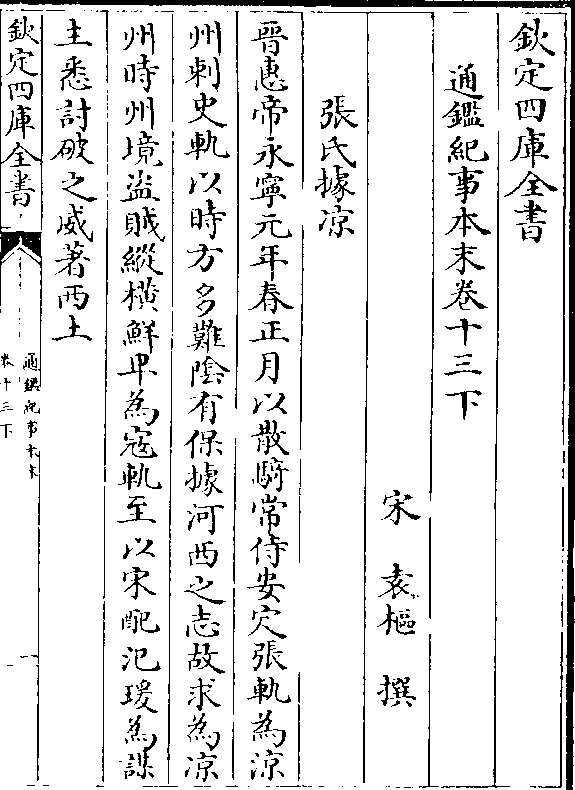 欽定四庫全書
通鑑紀事本末卷十三下
宋 袁樞 撰
張氏據凉
晉惠帝永寧元年春正月以散騎常侍安定張軌為涼
州刺史軌以時方多難陰有保據河西之志故求為凉
州時州境盜賊縱橫鮮卑為寇軌至以宋配氾瑗為謀
主悉討破之威著西土
欽定四庫全書
通鑑紀事本末
卷十三下
一